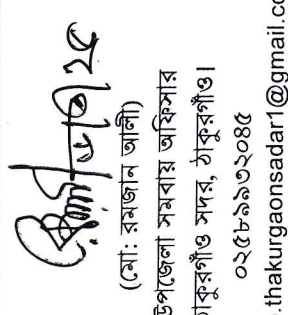 (মো: রমজান আলী)
উপজেলা সমবায় অফিসার
ঠাকুরগাঁও সদর, ঠাকুরগাঁও।
০২৫৮৯৯৩২০৪৫
.thakurgaonsadar1@gmail.co